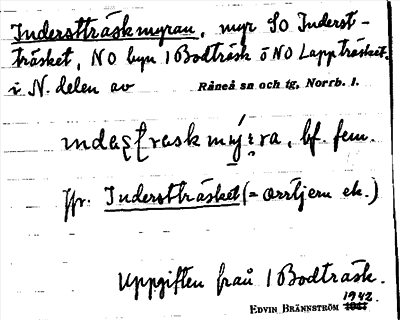 Inderstträskmyran, myr SO Inderst-
träsket, NO byn 1 Bodträsk o NO Lappträsket.
i N. delen av Råneå sn och tg, Norrb. l.
bf. fem.
Jfr. Inderstträsket (= orrtjern ek.)
Uppgiften från 1 Bodträsk.
1942.
EDVIN BRÄNNSTRÖM